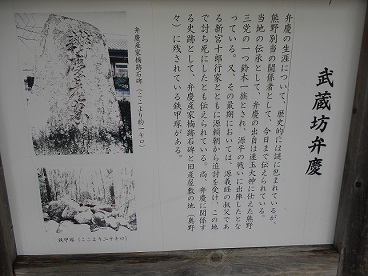 武蔵坊弁慶
弁慶の生涯について、歴史的には謎に包まれているが、
熊野別当の関係者として、今日まで伝えられている。
当地の伝承として、弁慶の出自は速玉大神に仕えた熊野
三党の一つ鈴木一族とされ、源平の戦いに出陣したとな
っている。又、その最期においては、源義経の叔父であ
る新宮十郎行家とともに源頼朝から追討を受け、この地
で討ち死にしたとも伝えられている。尚、弁慶に関係す
る史跡として、弁慶産家楠跡石碑と旧産屋敷の地(熊野
々)に残されている鉄甲塚がある。
弁慶産家楠跡石碑(ここより約一キロ)
鉄甲塚(ここより二十キロ)